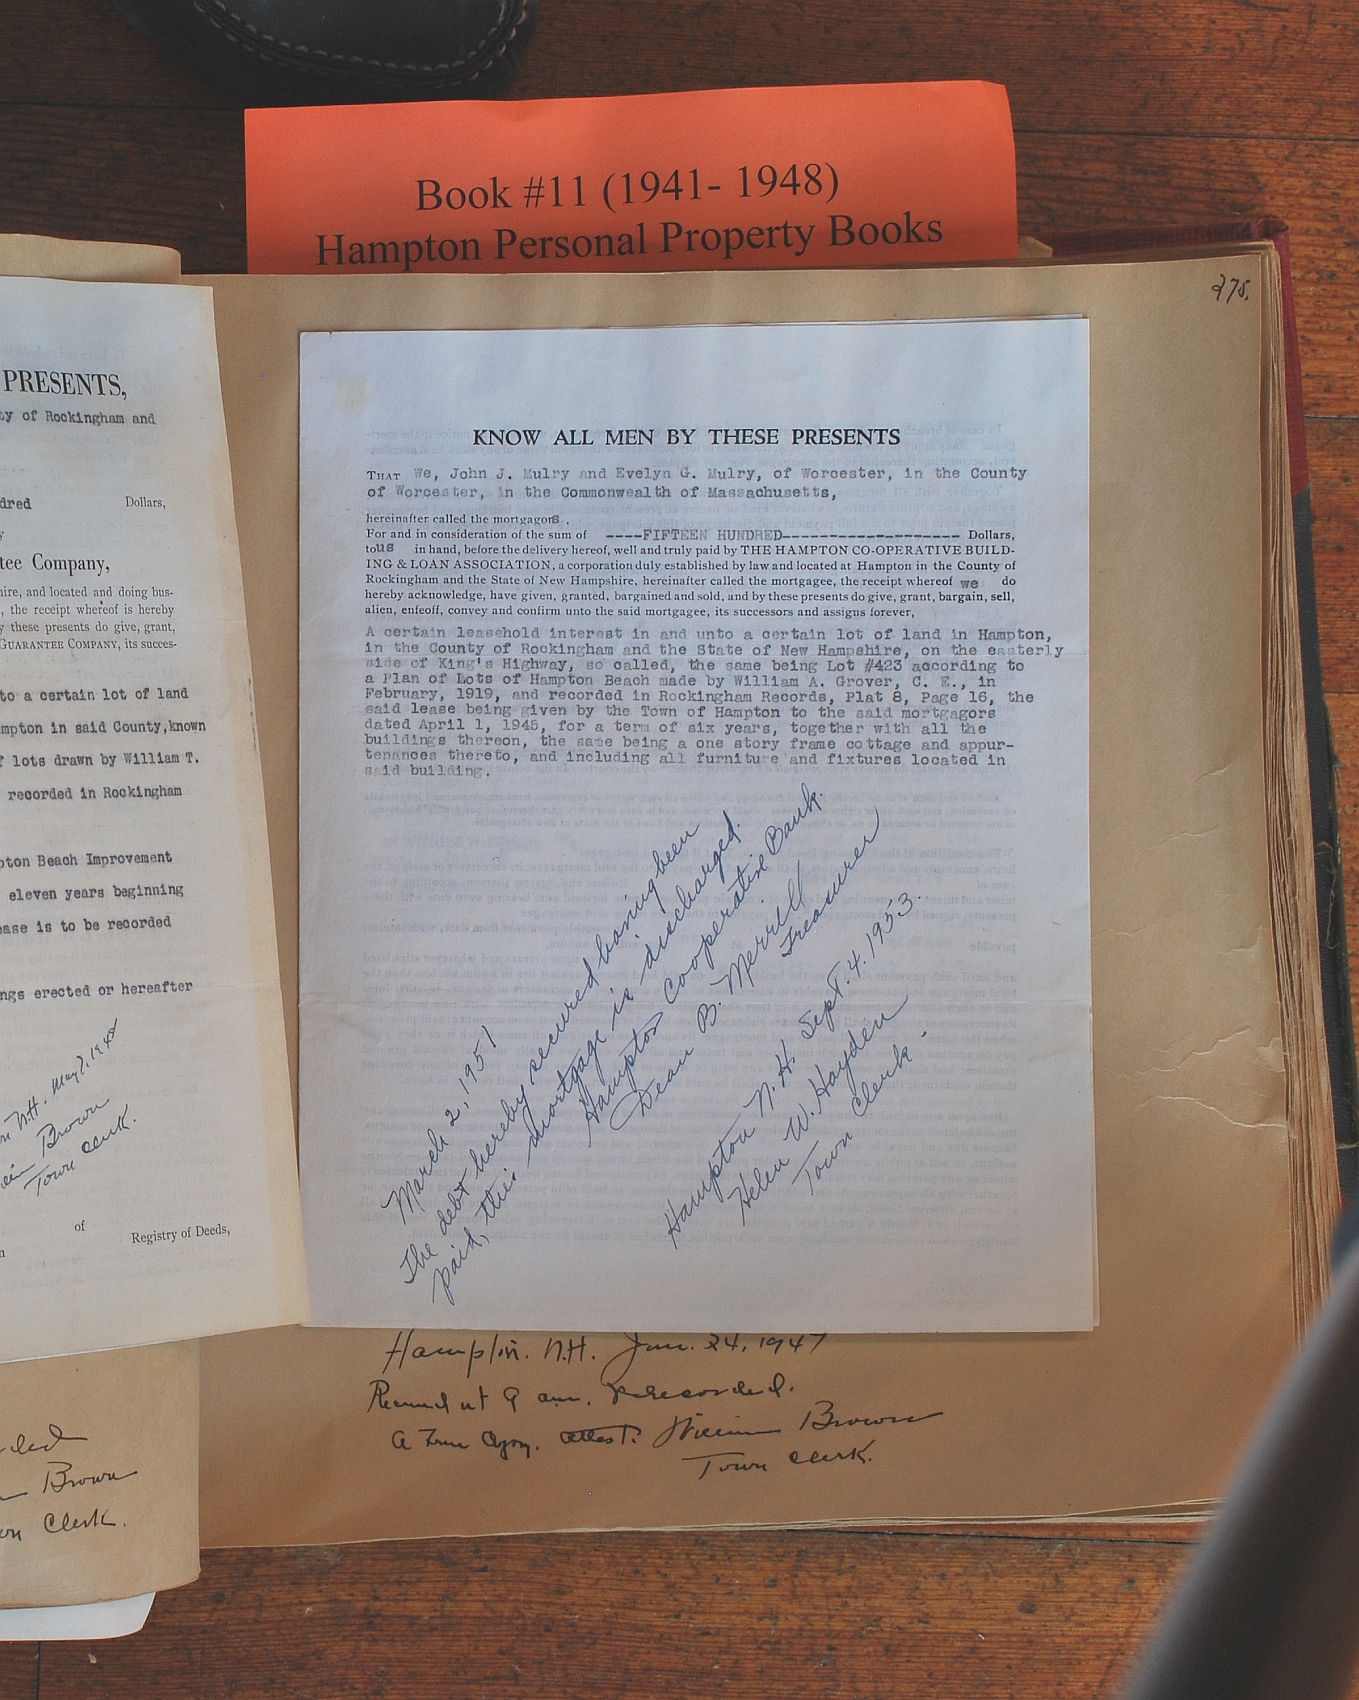 Book #11 (1941- 1948)
Hampton Personal Property Books
275.
PRESENTS,
ty of Rockingham and
dred Dollars,
y
tee Company,
ire, and located and doing bus-
, the receipt whereof is hereby
y these presents do give, grant,
GUARANTEE COMPANY, its succes-
to a certain lot of land
mpton in said County,known
f lots drawn by William T.
recorded in Rockingham
pton Beach Improvement
eleven years beginning
ease is to be recorded
ngs erected or hereafter
N.H. May 7, 1948
Brown
Town Clerk.
of
n Registry of Deeds,
ded
Brown
wn Clerk.
KNOW ALL MEN BY THESE PRESENTS
THAT We, John J. Mulry and Evelyn G. Mulry, of Worcester, in the County
of Worcester, in the Commonwealth of Massachusetts,
hereinafter called the mortgagors ,
For and in consideration of the sum of ----FIFTEEN HUNDRED------------------- Dollars,
to us in hand, before the delivery hereof, well and truly paid by THE HAMPTON CO-OPERATIVE BUILD-
ING & LOAN ASSOCIATION, a corporation duly established by law and located at Hampton in the County of
Rockingham and the State of New Hampshire, hereinafter called the mortgagee, the receipt whereof we do
hereby acknowledge, have given, granted, bargained and sold, and by these presents do give, grant, bargain, sell,
alien, enfeoff, convey and confirm unto the said mortgagee, its successors and assigns forever,
A certain leasehold interest in and unto a certain lot of land in Hampton,
in the County of Rockingham and the State of New Hampshire, on the easterly
side of King's Highway, so called, the same being Lot #423 according to
a Plan of Lots of Hampton Beach made by William A. Grover, C. E., in
February, 1919, and recorded in Rockingham Records, Plat 8, Page 16, the
said lease being given by the Town of Hampton to the said mortgagors
dated April 1, 1945, for a term of six years, together with all the
buildings thereon, the same being a one story frame cottage and appur-
tenances thereto, and including all furniture and fixtures located in
said building.
March 2, 1951
The debt hereby secured having been
paid, this mortgage is discharged.
Hampton Cooperative Bank.
Dean B. Merrill
Treasurer
Hampton N.H. Sept. 4. 1953.
Helen W. Hayden
Town Clerk.
Hampton. N.H. Jan. 24, 1947
Received at 9 am. & recorded.
A True Copy. Attest. William Brown
Town Clerk.